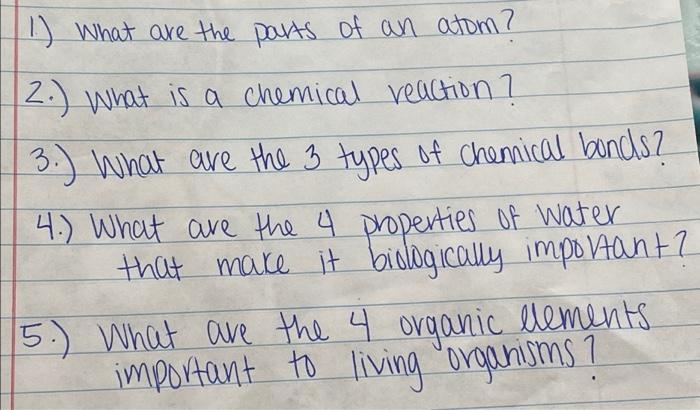 1) What are the parts of an atom?
2.) What is a chemical reaction?
3.) What are the 3 types of chemical bonds?
4.) What are the 4 properties of water
that make it biologically important?
5.) What are the 4 organic elements
important to living organisms?